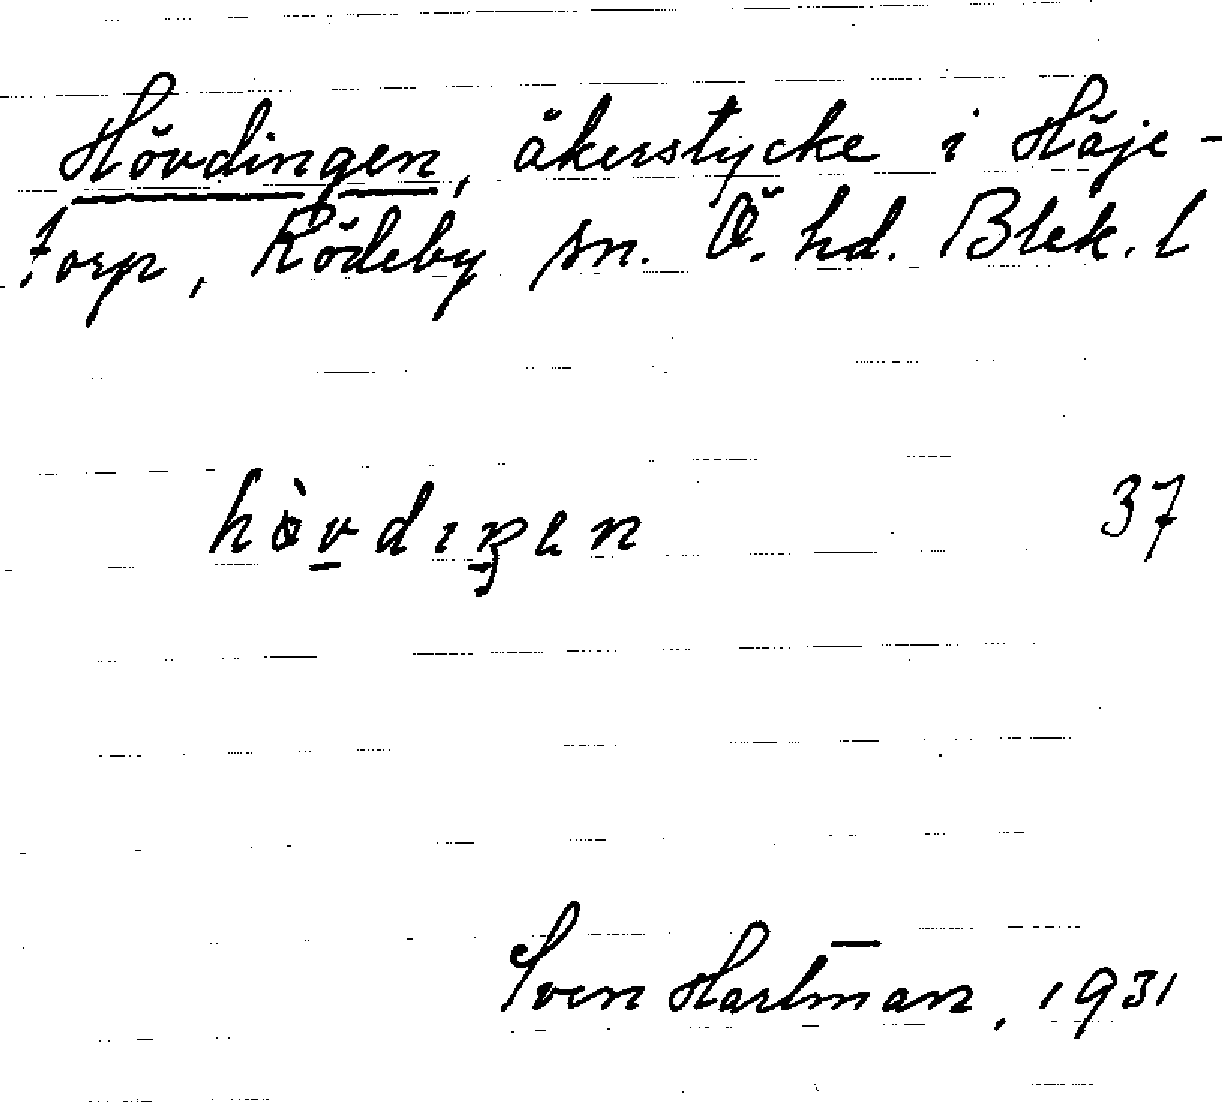 Hövdingen, åkerstycke i Häje-
torp, Rödeby sn. Ö. hd. Blek. l
hòvdıŋen 37
Sven Hartman, 1931